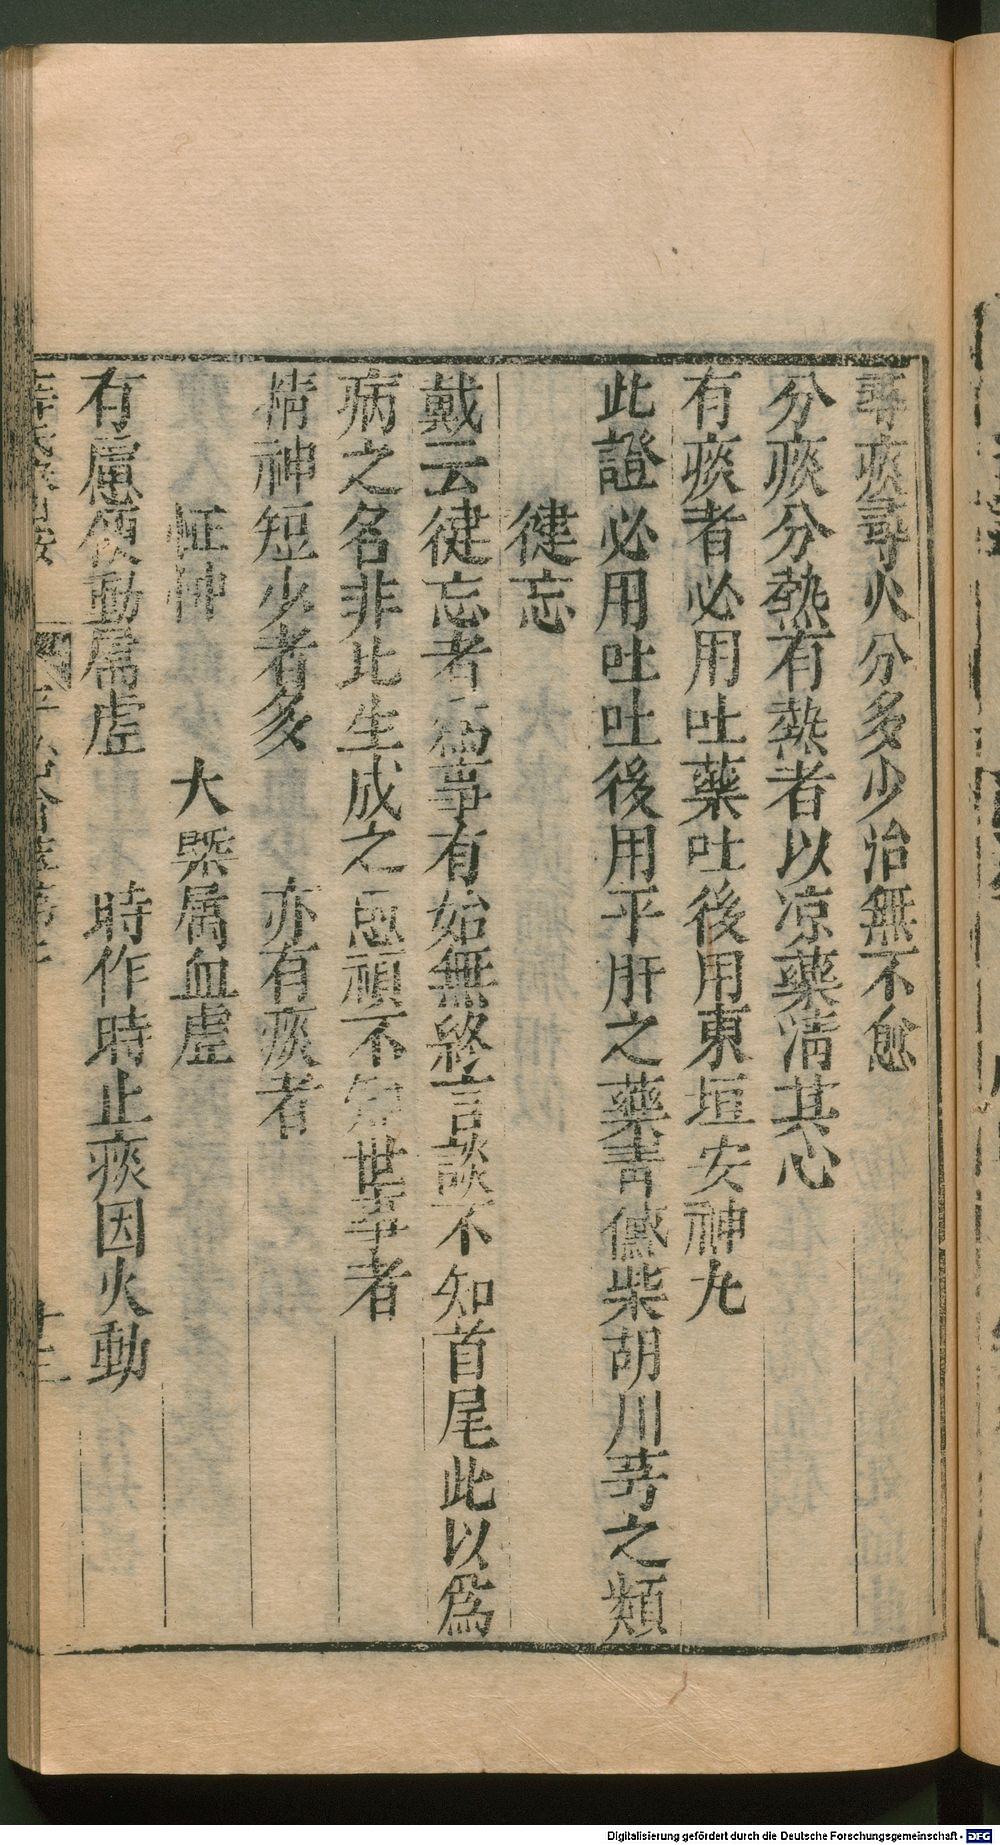 尋痰尋火分多少治無不愈
分痰分熱有熱者以凉藥清其心
有痰者必用吐藥吐後用東垣安神丸
此證必用吐吐後用平肝之藥青黛柴胡川芎之類
徤忘
戴云徤忘者為事有始無終言談不知首尾此以為
病之名非比生成之愚頑不知世事者
精神短少者多 亦有痰者
怔忡 大槩属血虚
有慮便動属虚 時作時止痰因火動
十三
Digitalisierung gefördert durch die Deutsche Forschungsgemeinschaft - DFG